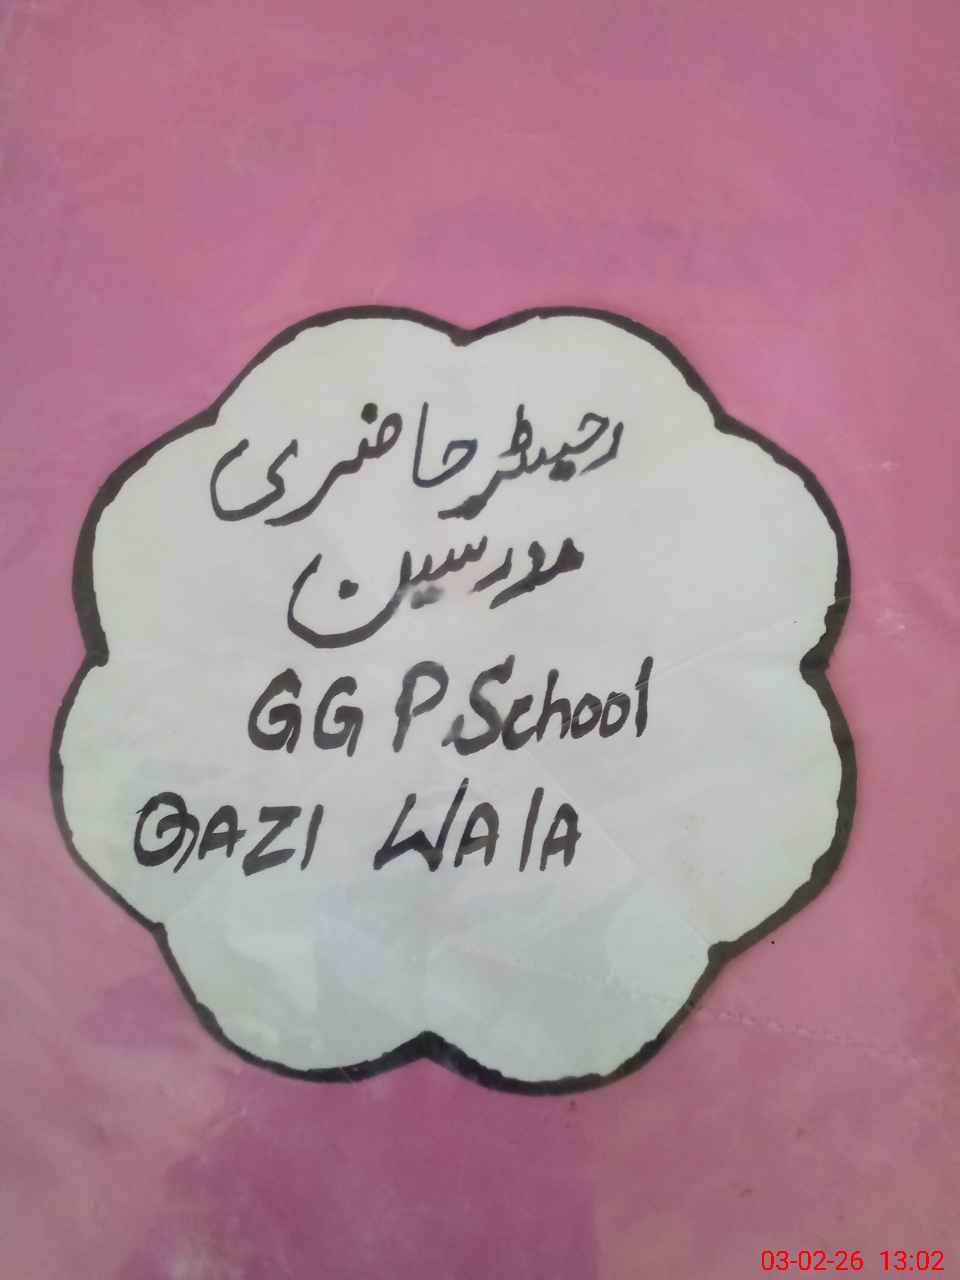 رجسٹر حاضری
مدرسین
GGP.School
QAZI WALA
03-02-26 13:02